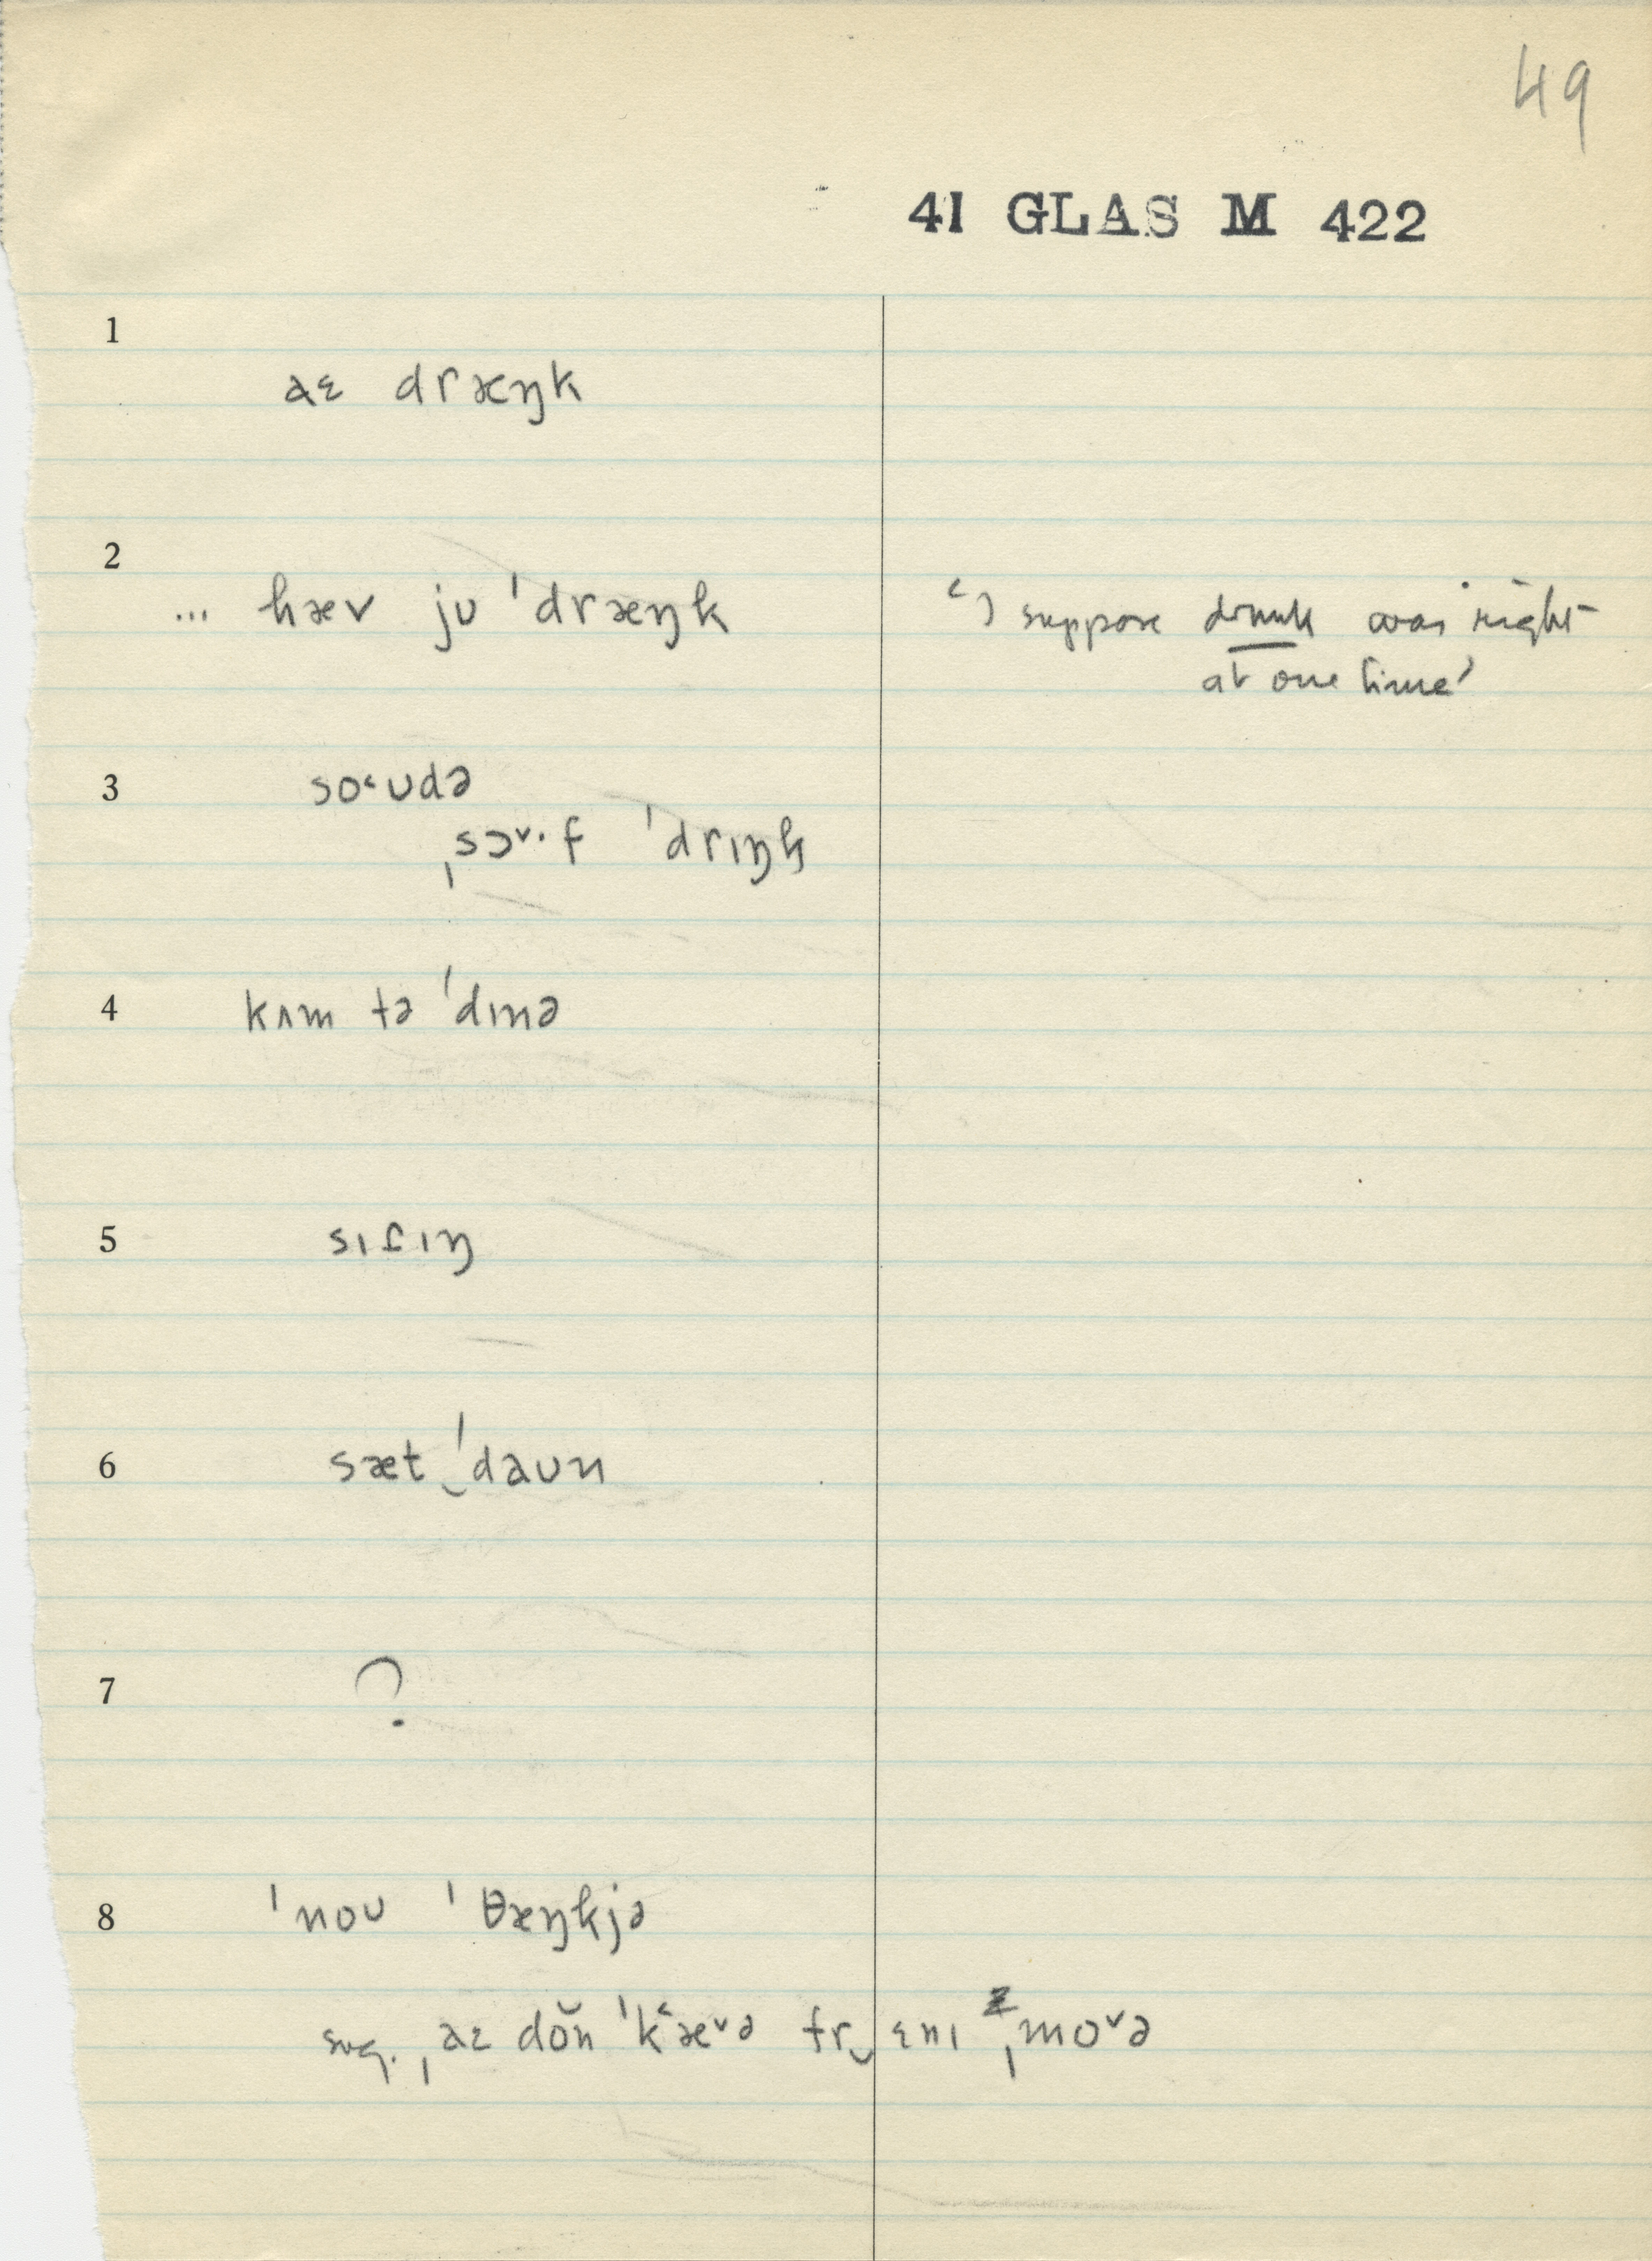 49
41 GLAS M 422
1
aɛ dræŋk
2
... hæv ju ˈdræŋk
‘I suppose drunk was right
at one time’
3
so˂ʊdə
ˌsɔ˅·f ˈdrɪŋk
4
kʌm tə ˈdɪnə
5
sɪtɪŋ
6
sæt‿ˈdaʊn
7
?
8
ˈnoʊ ˈθæŋkjə
sug. ˌaɛ dŏn ˈk˂æ˅ə fr‿ɛnɪ ˌmo˅ə